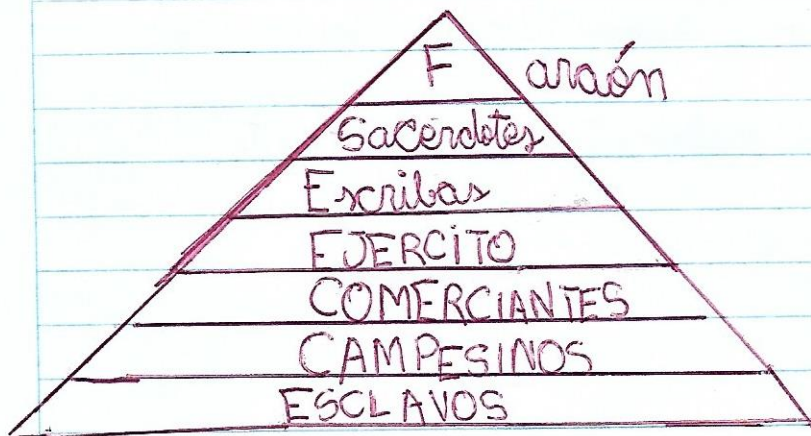 F araón
Sacerdotes
Escribas
EJERCITO
COMERCIANTES
CAMPESINOS
ESCLAVOS